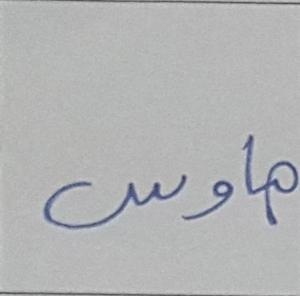 ماوس